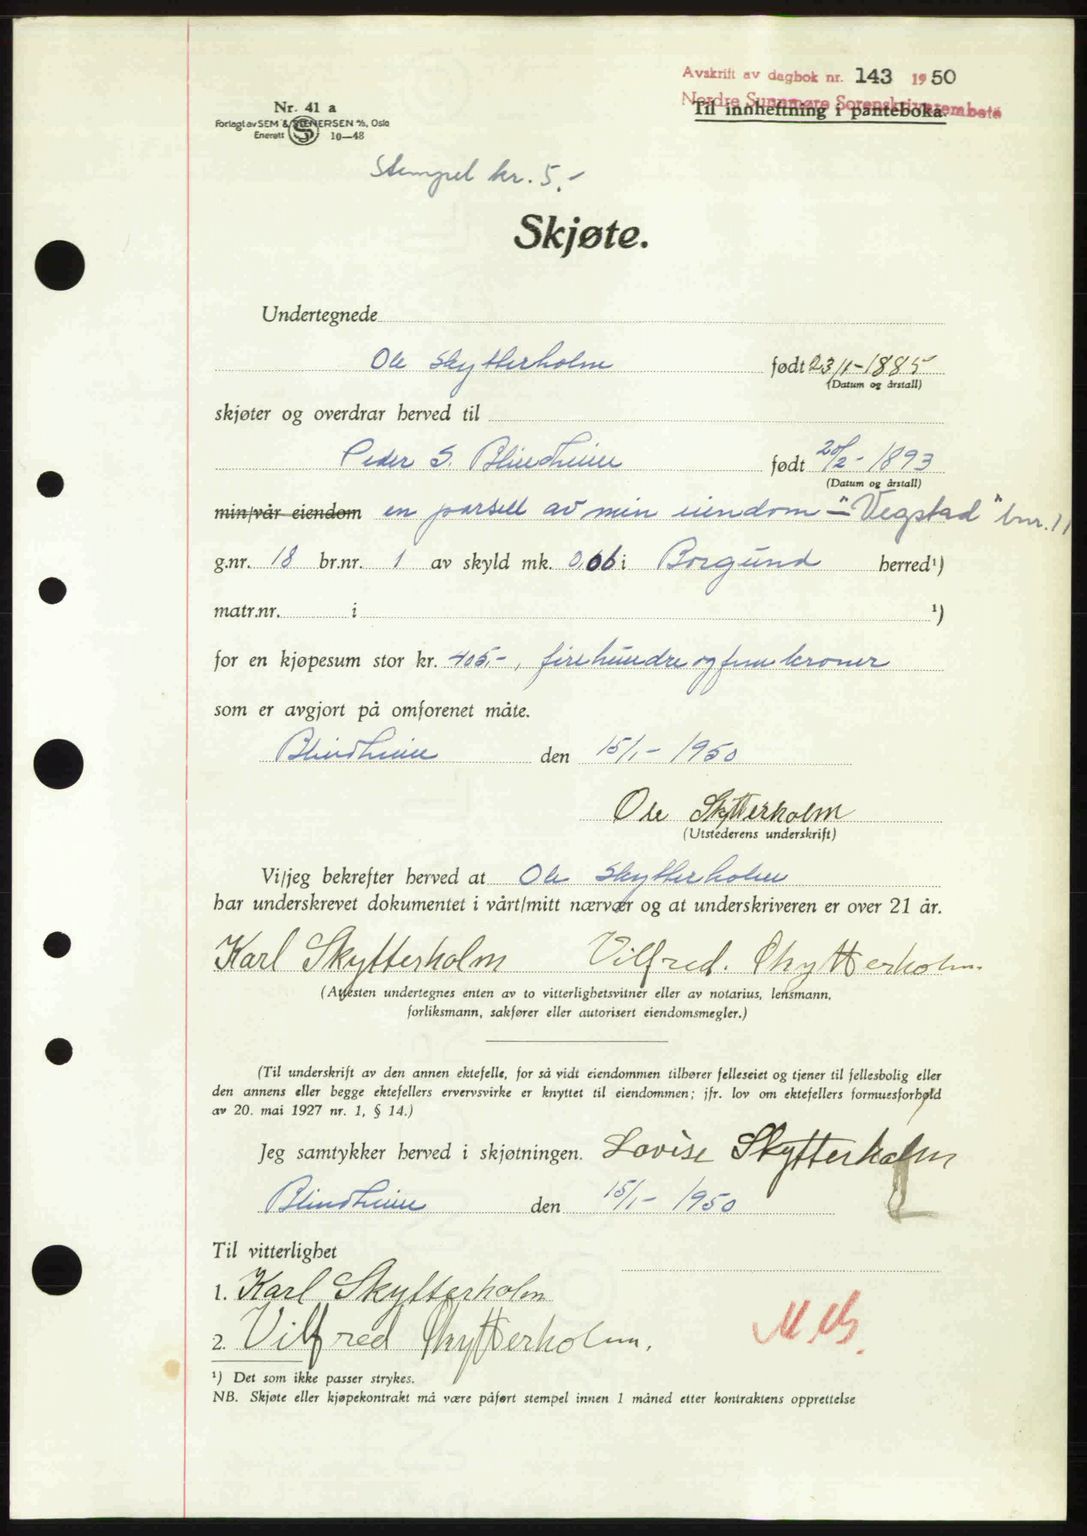 Avskrift av dagbok nr. 143 1950
Nordre Sunnmøre Sorenskriverembete
Til innheftning i panteboka.
Nr. 41 a
Forlagt av SEM & STENERSEN A/S, Oslo
Enerett S 10—48
Stempel kr. 5.-
Skjøte.
Undertegnede
Ole Skytterholm født 23/1-1885
(Datum og årstall)
skjøter og overdrar herved til
Peder S. Blindheim født 20/2-1893
(Datum og årstall)
min/vår eiendom en parsell av min eiendom - "Vegstad" bnr. 11
g.nr. 18 br.nr. 1 av skyld mk. 0,06 i Borgund herred¹)
matr.nr. i ¹)
for en kjøpesum stor kr. 405.-, firehundreogfem kroner
som er avgjort på omforenet måte.
Blindheim den 15/1-1950
Ole Skytterholm
(Utstederens underskrift)
Vi/jeg bekrefter herved at Ole Skytterholm
har underskrevet dokumentet i vårt/mitt nærvær og at underskriveren er over 21 år.
Karl Skytterholm Vilfred. Skytterholm.
(Attesten undertegnes enten av to vitterlighetsvitner eller av notarius, lensmann,
forliksmann, sakfører eller autorisert eiendomsmegler.)
(Til underskrift av den annen ektefelle, for så vidt eiendommen tilhører felleseiet og tjener til fellesbolig eller
den annens eller begge ektefellers ervervsvirke er knyttet til eiendommen; jfr. lov om ektefellers formuesforhold
av 20. mai 1927 nr. 1, § 14.)
Jeg samtykker herved i skjøtningen. Lovise Skytterholm
Blindheim den 15/1-1950
Til vitterlighet
1. Karl Skytterholm
2. Vilfred Skytterholm.
¹) Det som ikke passer strykes.
NB. Skjøte eller kjøpekontrakt må være påført stempel innen 1 måned etter kontraktens opprettelse